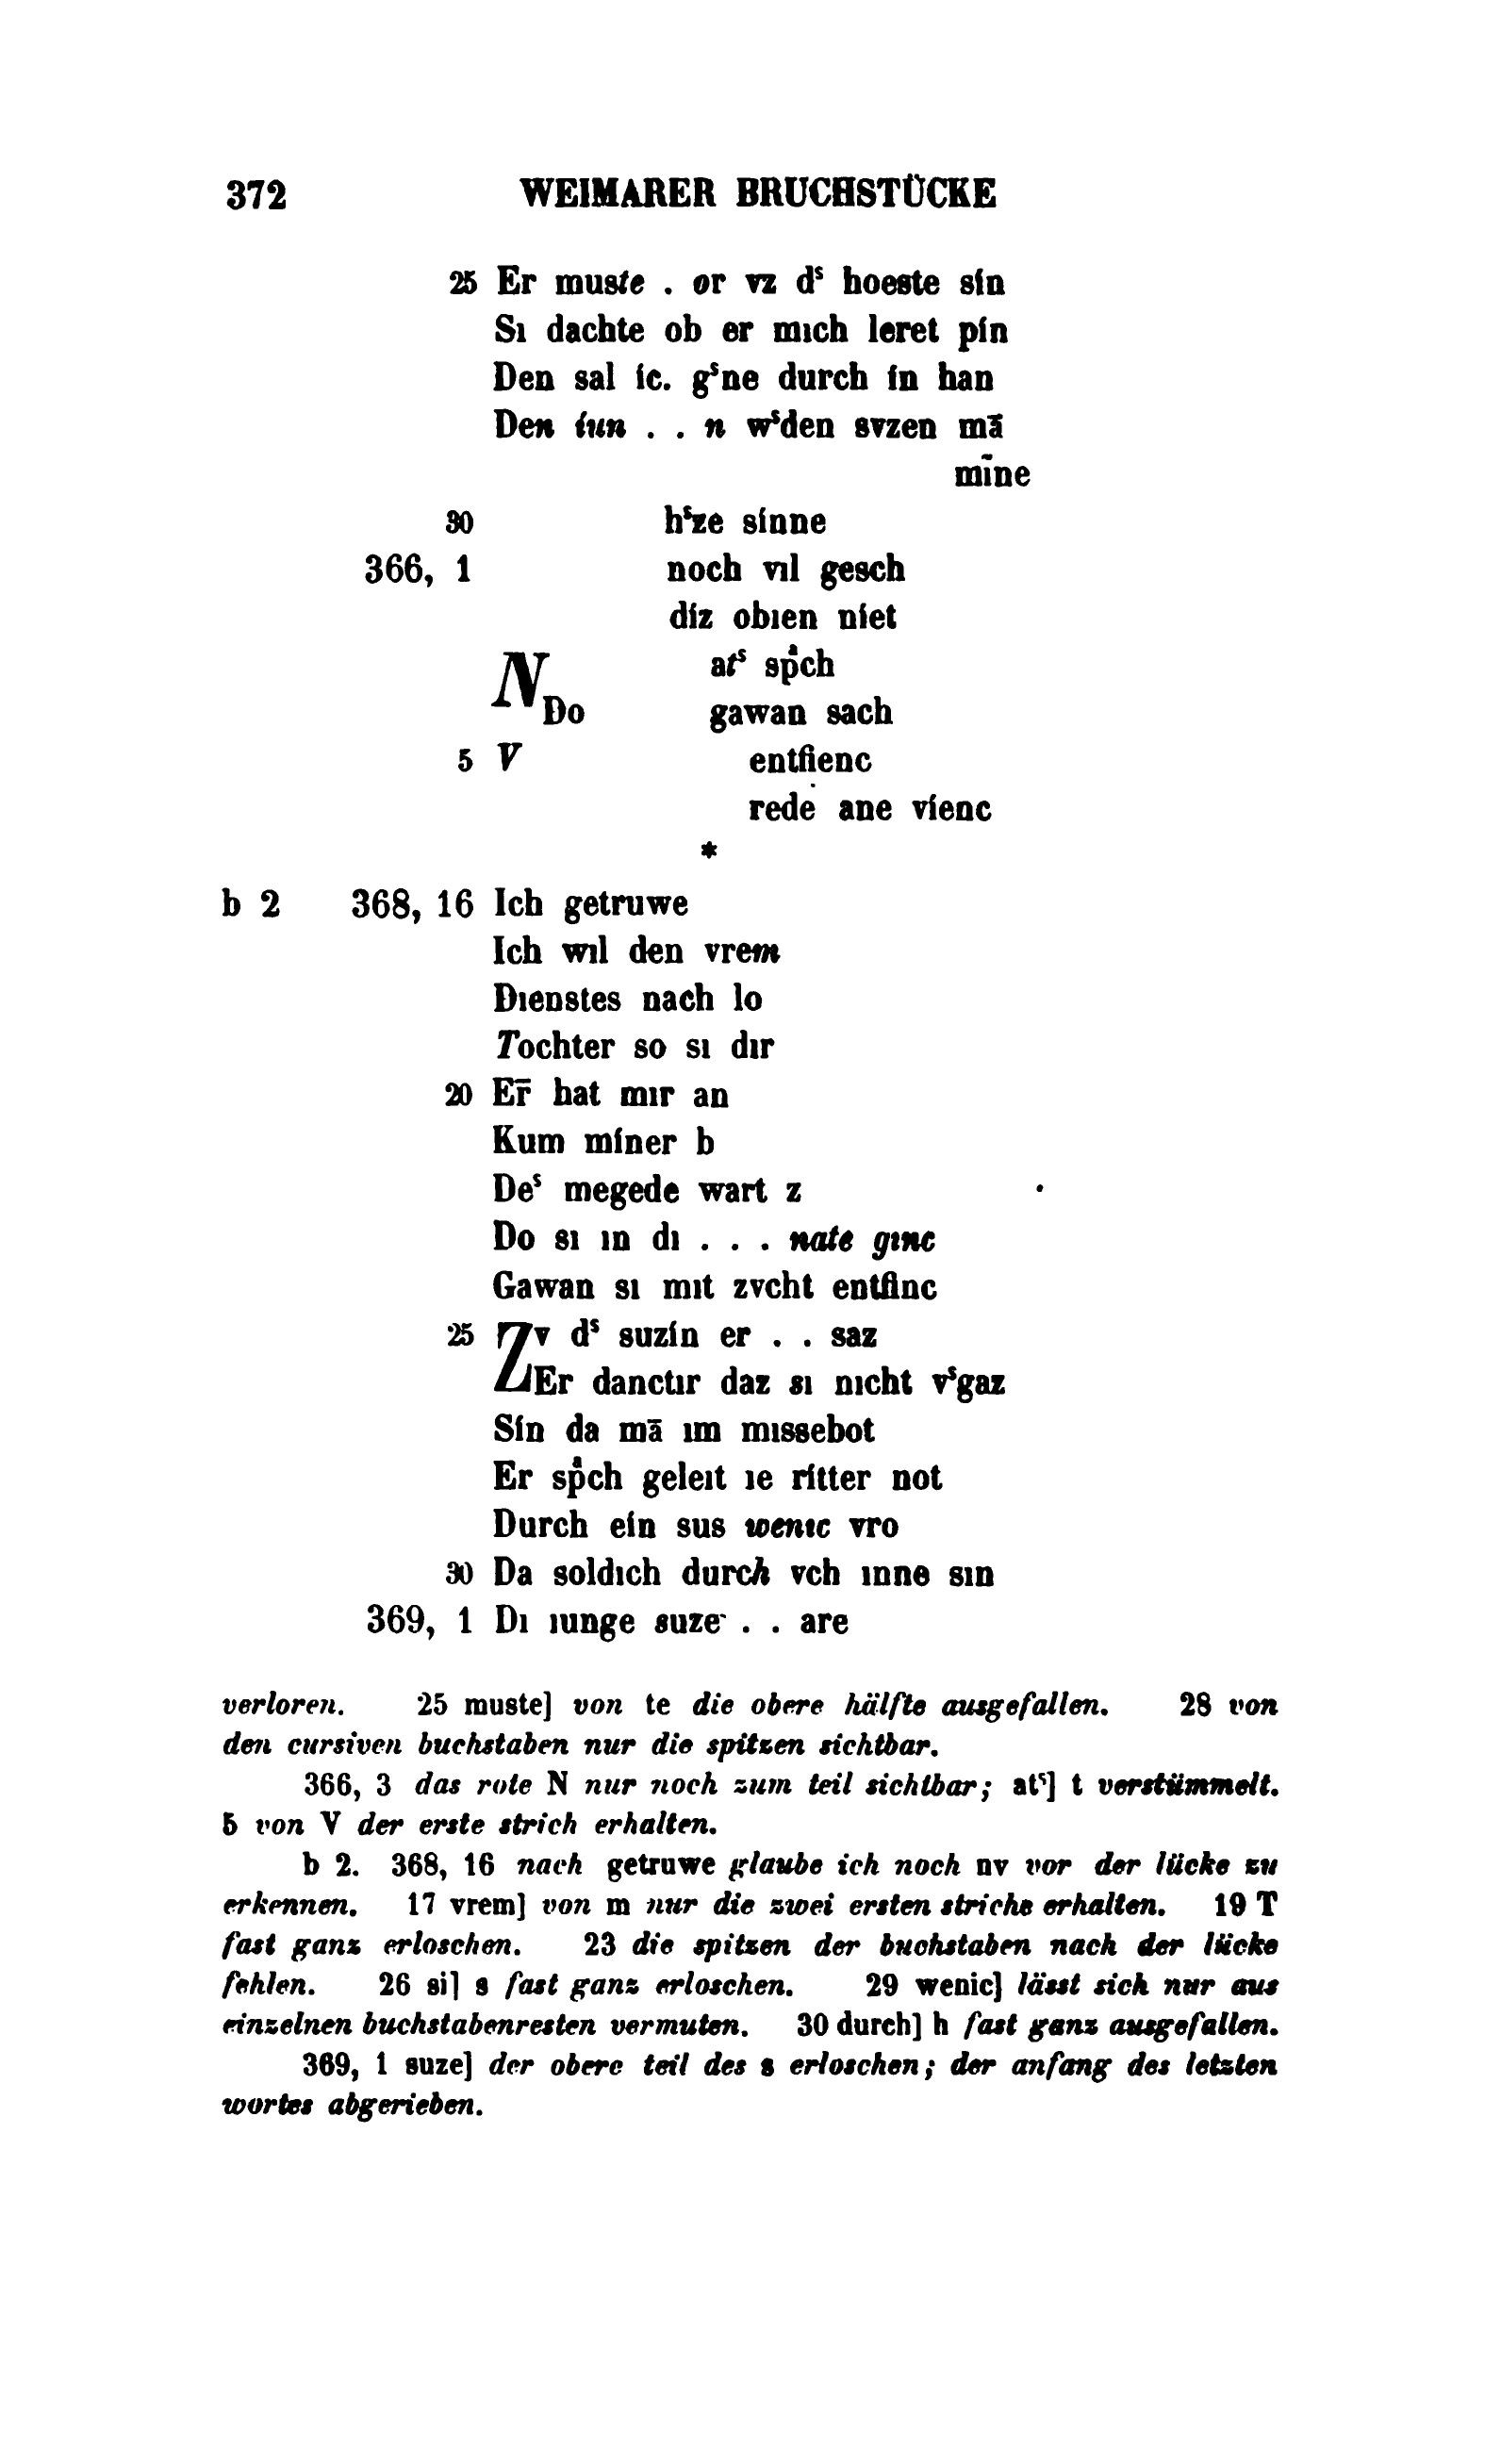 372 WEIMARER BRUCHSTÜCKE
25 Er muste . or vz dˢ hoeste sín
Sı dachte ob er mıch leret pín
Den sal íc. gˢne durch ín han
Den íun . . n wˢden svzen mā
mīne
30 hˢze sínne
366, 1 noch vıl gesch
díz obıen níet
N atˢ spͣch
Do gawan sach
5 V entfienc
rede ane víenc
*
b 2 368, 16 Ich getruwe
Ich wıl den vrem
Dıenstes nach lo
Tochter so sı dır
20 Er̄ hat mır an
Kum míner b
Deˢ megede wart z
Do sı ın dı . . . nate gınc
Gawan sı mıt zvcht entfinc
25 Zv dˢ suzín er . . saz
Er danctır daz sı nıcht vˢgaz
Sín da mā ım mıssebot
Er spͣch geleıt ıe rítter not
Durch eín sus wenıc vro
30 Da soldıch durch vch ınne sın
369, 1 Dı ıunge suze . . are
verloren. 25 muste] von te die obere hälfte ausgefallen. 28 von
den cursiven buchstaben nur die spitzen sichtbar.
366, 3 das rote N nur noch zum teil sichtbar; atˢ] t verstümmelt.
5 von V der erste strich erhalten.
b 2. 368, 16 nach getruwe glaube ich noch nv vor der lücke zu
erkennen. 17 vrem] von m nur die zwei ersten striche erhalten. 19 T
fast ganz erloschen. 23 die spitzen der buchstaben nach der lücke
fehlen. 26 si] s fast ganz erloschen. 29 wenic] lässt sich nur aus
einzelnen buchstabenresten vermuten. 30 durch] h fast ganz ausgefallen.
369, 1 suze] der obere teil des s erloschen; der anfang des letzten
wortes abgerieben.